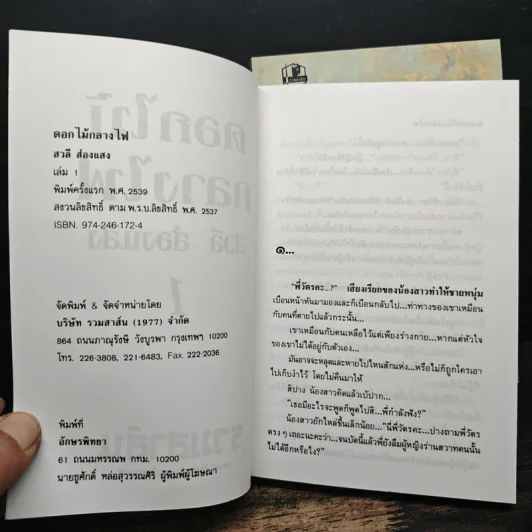 ดอกไม้กลางไฟ
สวลี ส่องแสง
เล่ม 1
พิมพ์ครั้งแรก พ.ศ. 2539
สงวนลิขสิทธิ์ ตาม พ.ร.บ.ลิขสิทธิ์ พ.ศ. 2537
ISBN. 974-246-172-4
จัดพิมพ์ & จัดจำหน่ายโดย
บริษัท รวมสาส์น (1977) จำกัด
864 ถนนภาณุรังษี วังบูรพา กรุงเทพฯ 10200
โทร. 226-3808, 221-6483, Fax. 222-2036
พิมพ์ที่
อักษรพิทยา
61 ถนนมหรรณพ กทม. 10200
นายชูศักดิ์ หล่อสุวรรณศิริ ผู้พิมพ์ผู้โฆษณา
๑...
"พี่วัตรคะ...?" เสียงเรียกของน้องสาวทำให้ชายหนุ่ม
เบือนหน้าหันมามองและก็เบือนกลับไป...ท่าทางของเขาเหมือน
กับคนที่ตายไปแล้วกระนั้น...
เขาเหมือนกับคนเหลือไว้แต่เพียงร่างกาย...หากแต่หัวใจ
ของเขาไม่ได้อยู่กับตัวเอง...
มันอาจจะหลุดและหายไปไหนสักแห่ง...หรือไม่ก็ถูกใครเอา
ไปเก็บงำไว้ โดยไม่คืนมาให้
สิปาง น้องสาวคิดแล้วเบ้ปาก...
"เธอมีอะไรจะพูดก็พูดไปสิ...พี่กำลังฟัง?"
น้องสาวยักไหล่ขึ้นเล็กน้อย..."นี่พี่วัตรคะ...ปางถามพี่วัตร
ตรง ๆ เถอะนะคะว่า...จนบัดนี้แล้วพี่ยังลืมผู้หญิงร่านสวาทคนนั้น
ไม่ได้อีกหรือไง?"